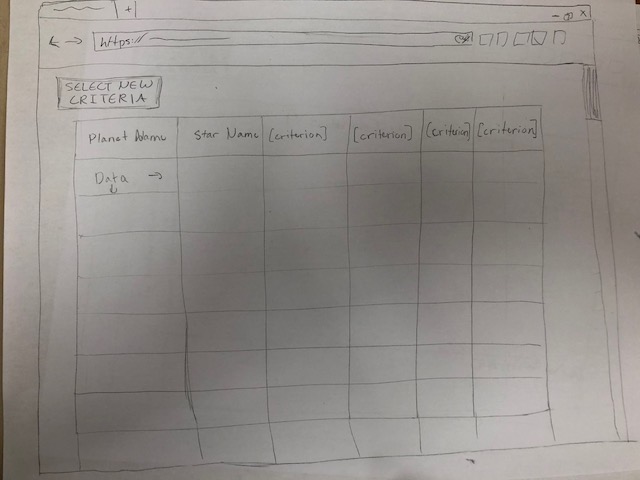 +
← → https://
X
SELECT NEW
CRITERIA
Planet Name Star Name [criterion] [criterion] [criterion] [criterion]
Data →
↓